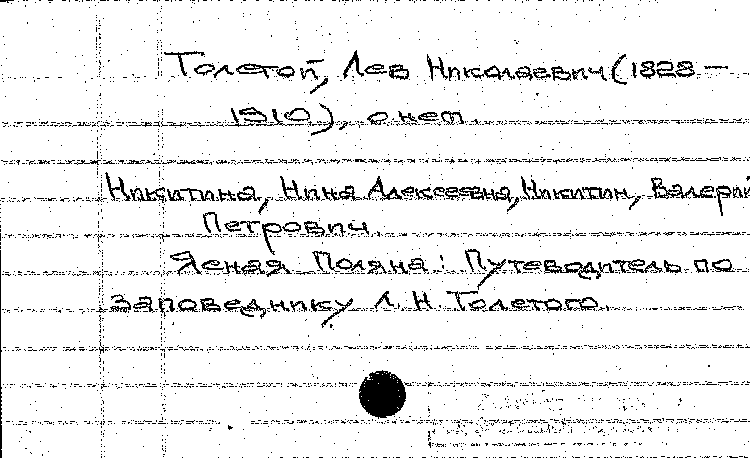 Толстой, Лев Николаевич (1828 –
1910), о нем.
Никитина, Нина Алексеевна, Никитин, Валерий
Петрович.
Ясная Поляна: Путеводитель по
заповеднику Л. Н. Толстого.